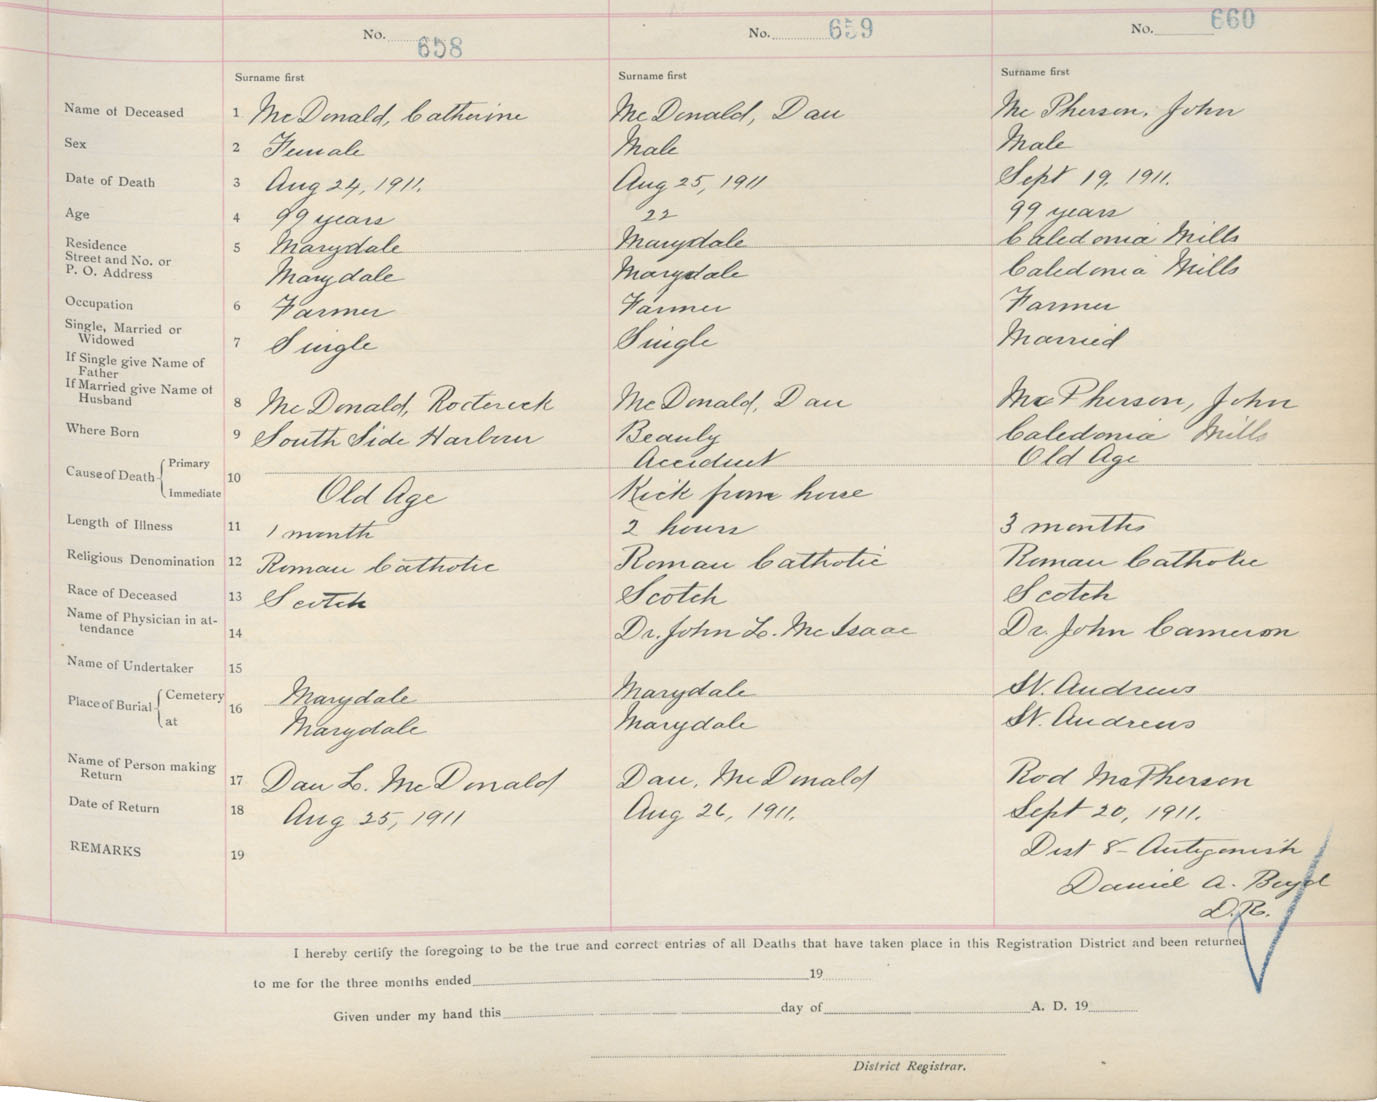 No. 658 No. 659 No. 660
Surname first Surname first Surname first
Name of Deceased 1 McDonald, Catherine McDonald, Dan McPherson, John
Sex 2 Female Male Male
Date of Death 3 Aug 24, 1911. Aug 25, 1911 Sept 19, 1911.
Age 4 99 years 22 99 years
Residence 5 Marydale Marydale Caledonia Mills
Street and No. or
P. O. Address Marydale Marydale Caledonia Mills
Occupation 6 Farmer Farmer Farmer
Single, Married or
Widowed 7 Single Single Married
If Single give Name of
Father
If Married give Name of
Husband 8 McDonald, Roderick McDonald, Dan McPherson, John
Where Born 9 South Side Harbour Beauly Caledonia Mills
Cause of Death Primary 10 Accident Old Age
Immediate Old Age Kick from horse
Length of Illness 11 1 month 2 hours 3 months
Religious Denomination 12 Roman Catholic Roman Catholic Roman Catholic
Race of Deceased 13 Scotch Scotch Scotch
Name of Physician in at-
tendance 14 Dr. John L. McIsaac Dr. John Cameron
Name of Undertaker 15
Place of Burial Cemetery 16 Marydale Marydale St. Andrews
at Marydale Marydale St. Andrews
Name of Person making
Return 17 Dan L. McDonald Dan, McDonald Rod McPherson
Date of Return 18 Aug 25, 1911 Aug 26, 1911. Sept 20, 1911.
REMARKS 19 Dist 8 - Antigonish
Daniel A. Boyd
D.R.
I hereby certify the foregoing to be the true and correct entries of all Deaths that have taken place in this Registration District and been returned
to me for the three months ended 19
Given under my hand this day of A. D. 19
District Registrar.